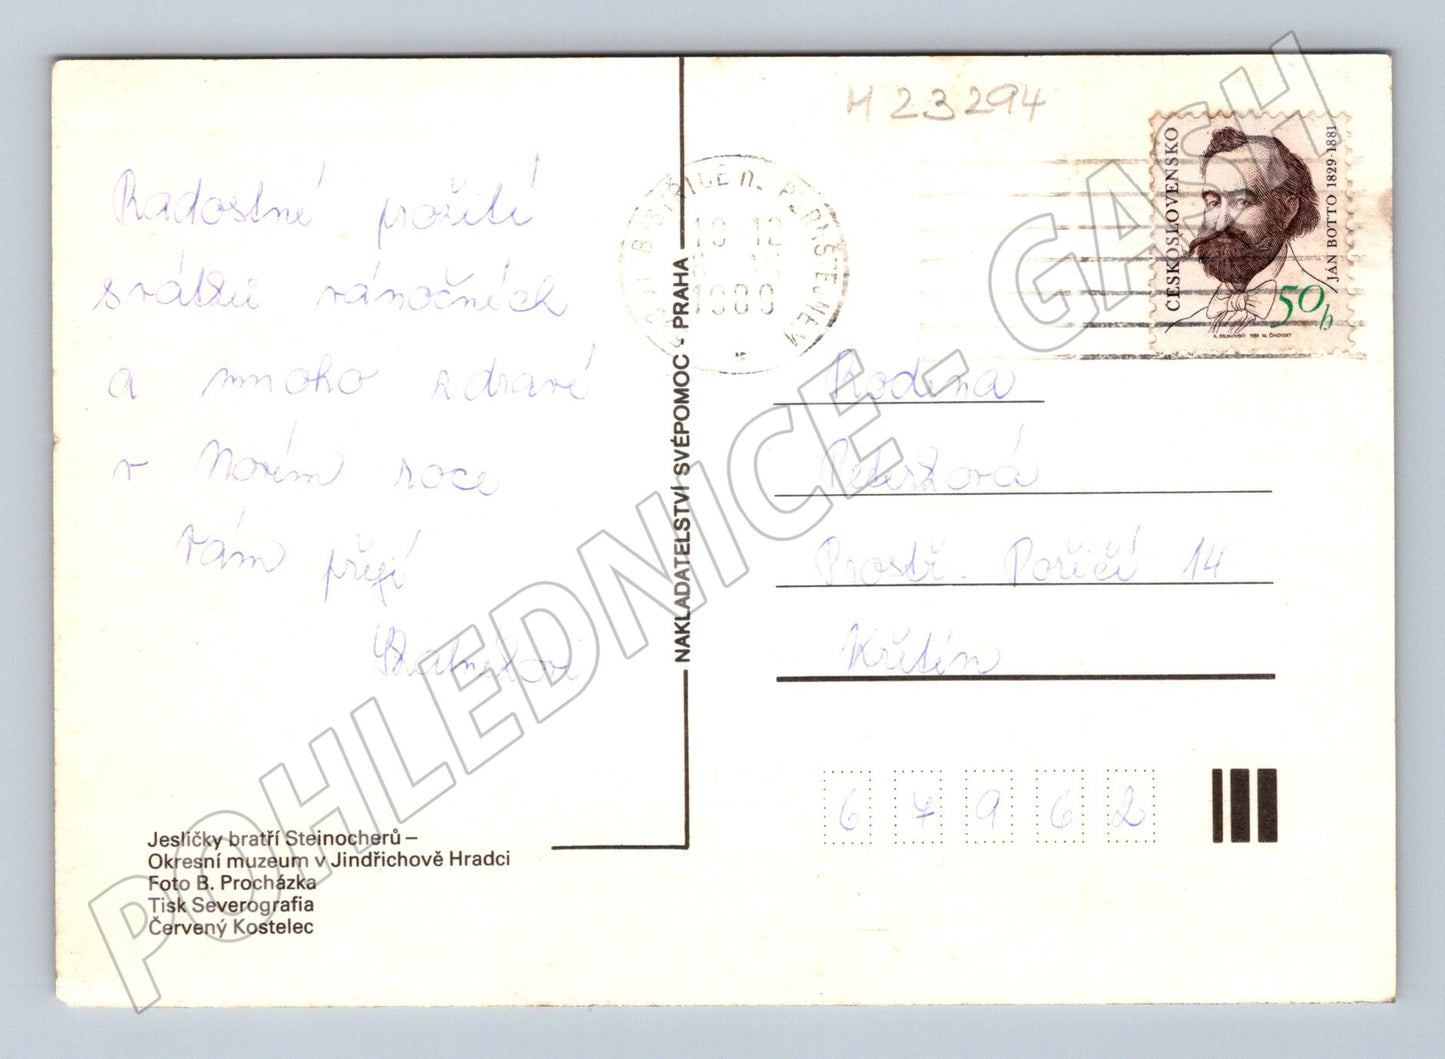 M 23294
Radostné prožití
svátků vánočních
a mnoho zdraví
v Novém roce
Vám přejí
BYSTŘICE n. PERNŠTEJNEM
ČESKOSLOVENSKO
JÁN BOTTO 1829-1881
50 h
NAKLADATELSTVÍ SVÉPOMOC - PRAHA
Rodina
Peterková
Prostř. Poříčí 14
Křetín
6 7 9 6 2
Jesličky bratří Steinocherů –
Okresní muzeum v Jindřichově Hradci
Foto B. Procházka
Tisk Severografia
Červený Kostelec
POHLEDNICE - GASH